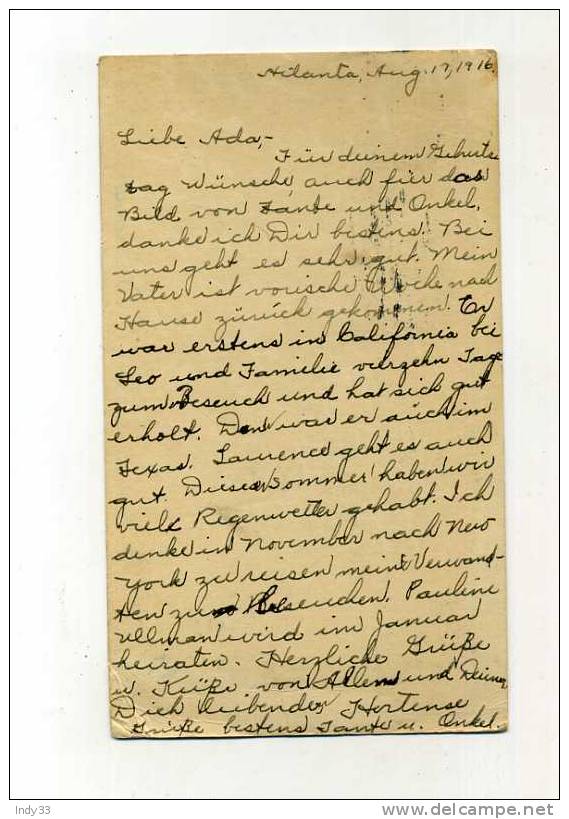 Atlanta, Aug. 17, 1916.
Liebe Ada,-
Für deinem Geburts
tag Wünsche, auch für das
Bild, von Tante und Onkel,
danke ich Dir bestens. Bei
uns geht es sehr gut. Mein
Vater ist vorische Woche nach
Hause zurück gekommen. Er
war erstens in California bei
Leo und Familie vierzehn Tage
zum Beseuch und hat sich gut
erholt. Dan war er auch im
Texas. Laurence geht es auch
gut. Dieser Sommer haben wir
viele Regenwetter gehabt. Ich
denke in November nach New
York zu reisen meine Verwand-
ten zu Beseuchen. Pauline
Ullman wird im Januar
heiraten. Herzliche Grüße
u. Küße von Allen und Deiner
Dich liebender Hortense
Grüße bestens Tante u. Onkel.
Indy33
delcampe.net